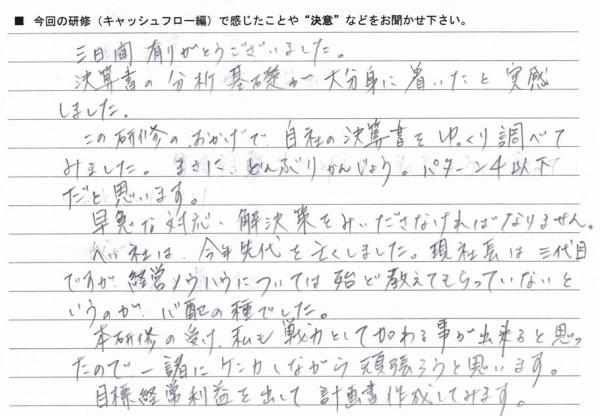 ■ 今回の研修（キャッシュフロー編）で感じたことや"決意"などをお聞かせ下さい。
三日間 有りがとうございました。
決算書の分析 基礎が 大分身に着いたと実感
しました。
この研修の おかげで 自社の決算書をゆっくり調べて
みました。まさに、どんぶりかんじょう。パターン4以下
だと思います。
早急な対応、解決策をみいださなければなりません。
社は、今年先代を亡くしました。現社長は三代目
ですが、経営ノウハウについては殆ど教えてもらっていないと
いうのが、心配の種でした。
本研修の受け、私も戦力として加わる事が出来ると思っ
たので一諸にケンカしながら頑張ろうと思います。
目標経常利益を出して 計画書作成してみます。